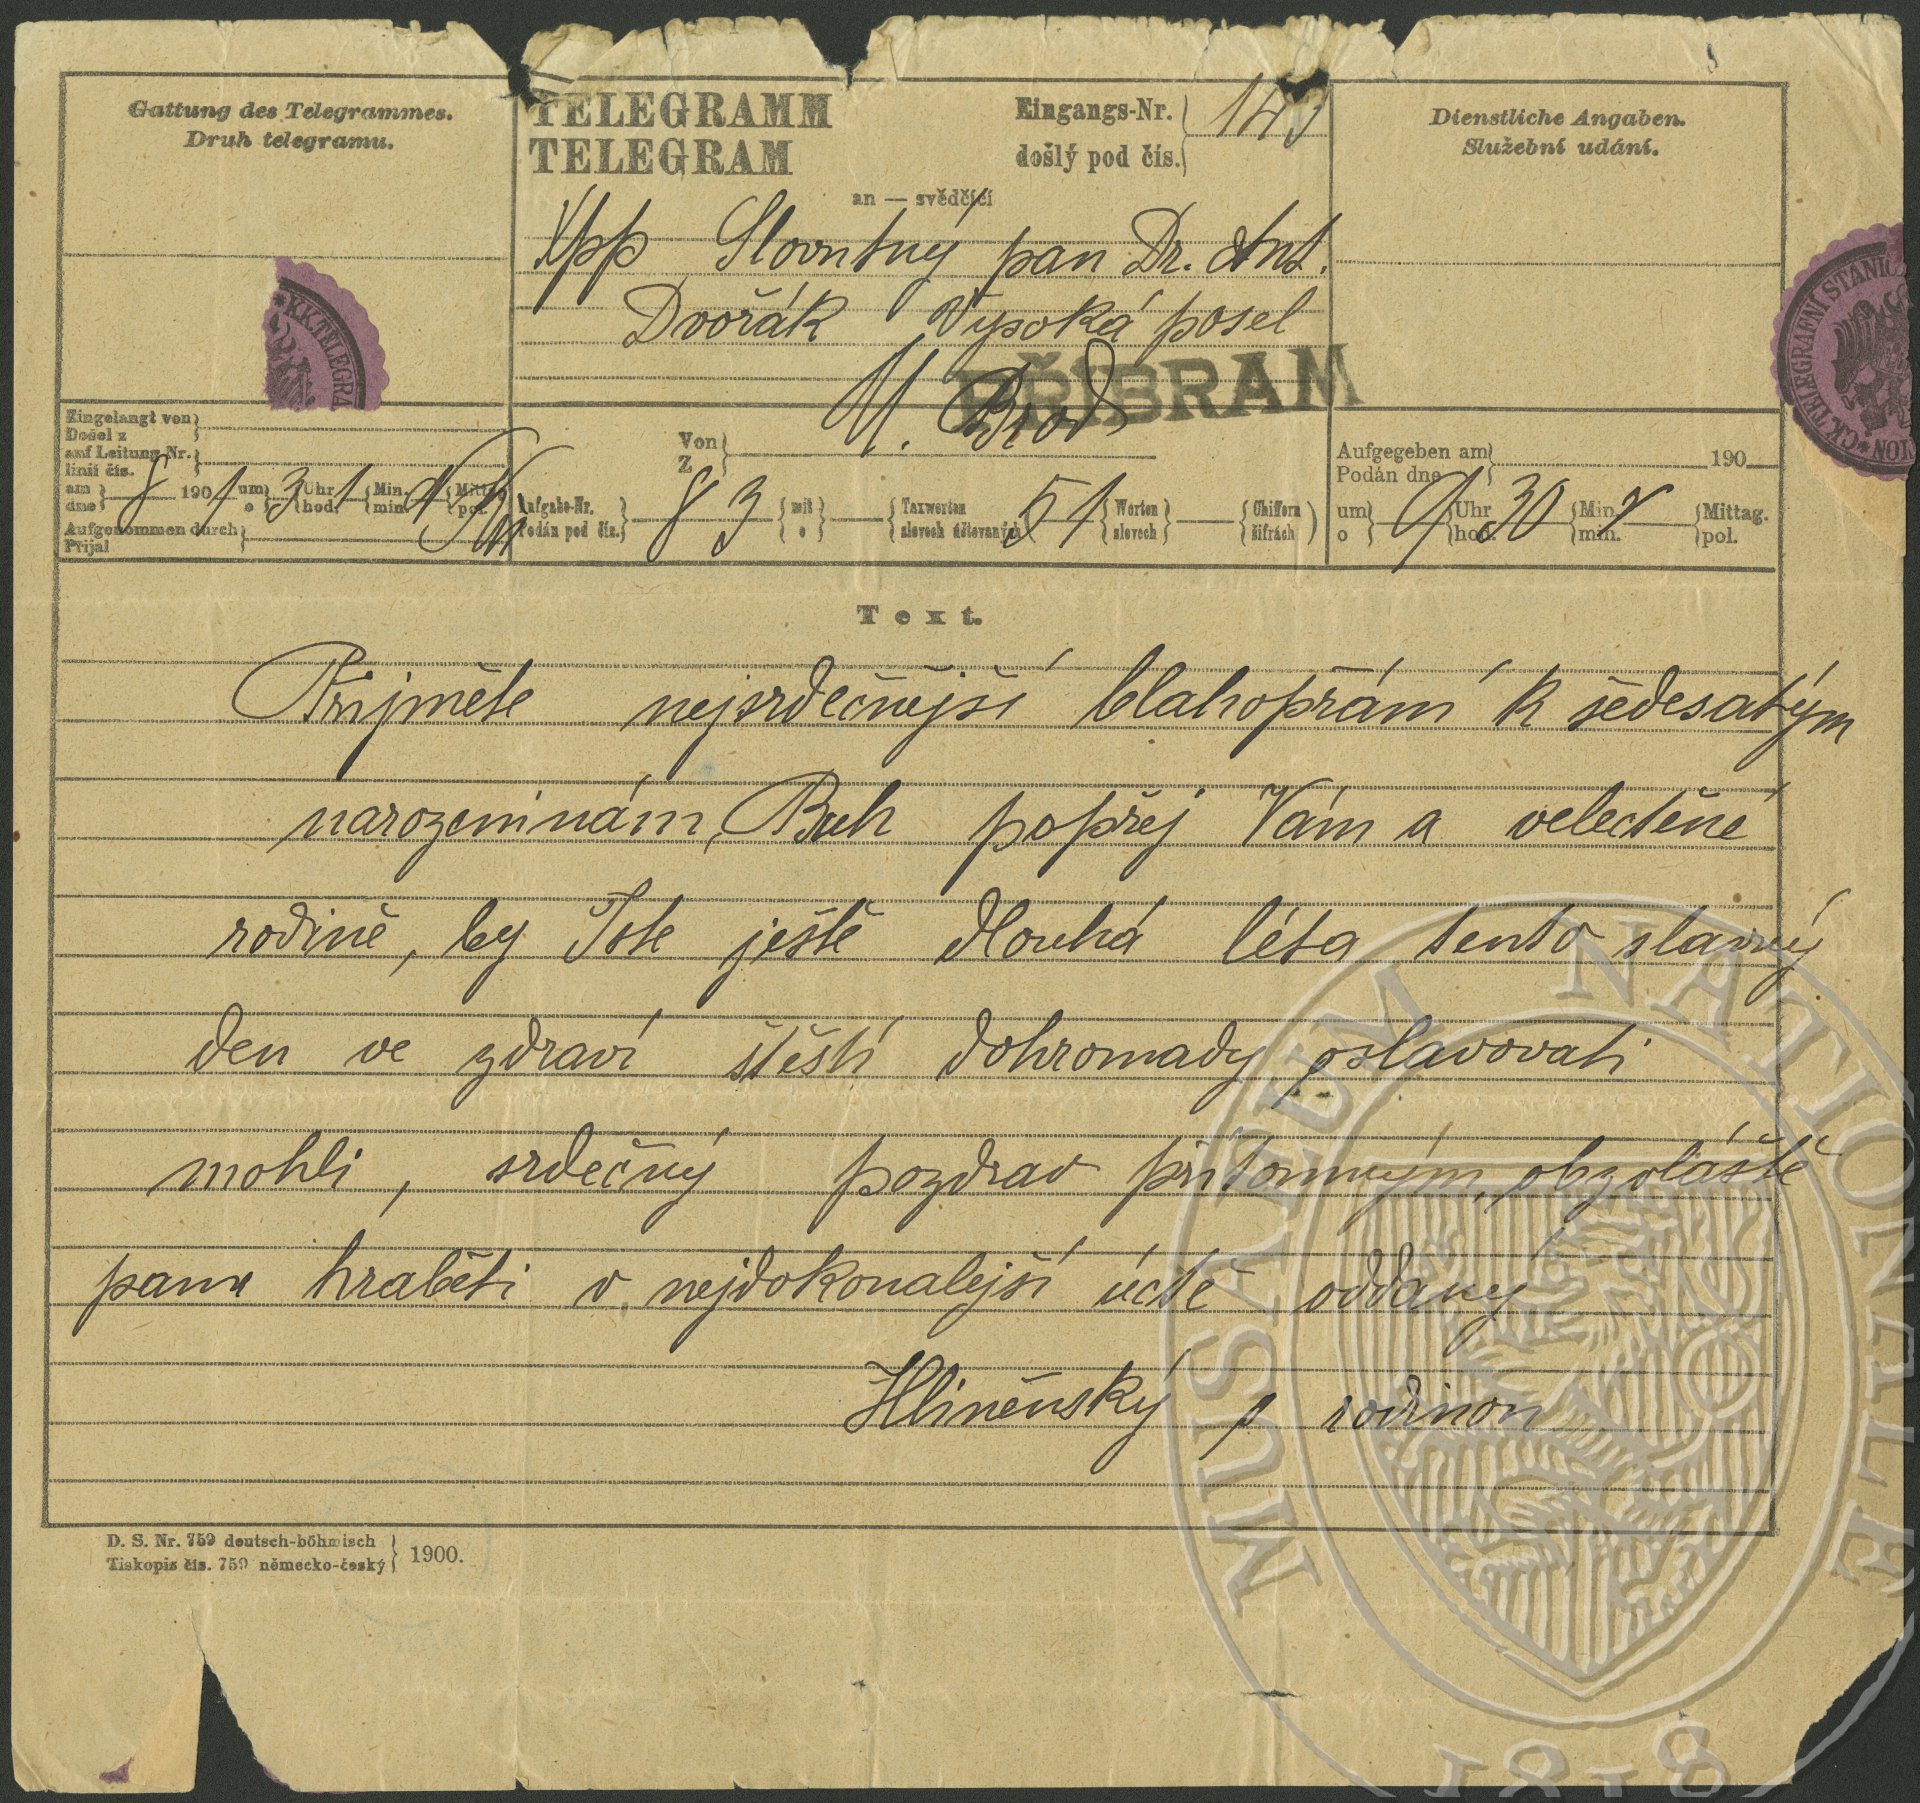 Gattung des Telegrammes.
Druh telegramu.
TELEGRAMM
TELEGRAM
Eingangs-Nr.
došlý pod čís.
Dienstliche Angaben.
Služební udání.
an — svědčící
Xpp Slovutný pan Dr. Ant.
Dvořák Vysoká posel
PŘÍBRAM
U. Brod
K.K. TELEGRA
C.K. TELEGRAFNÍ STANIC
Eingelangt von
Došel z
auf Leitung Nr.
linii čís.
am 8 1901 um 3 Uhr 1 Min. Mittag
dne o hod. min. pol.
Aufgenommen durch
Přijal
Von
Z
Aufgabe-Nr. 83 mit Taxworten 51 Worten Chiffern
Podán pod čís. o slovech účtovaných slovech šifrách
Aufgegeben am 190
Podán dne
um 9 Uhr 30 Min. Mittag.
o hod. min. pol.
Text.
Přijměte nejsrdečnější blahopřání k šedesatým
narozeninám, Buh popřej Vám a velectěné
rodině, by Jste ještě dlouhá léta tento slavný
den ve zdraví štěstí dohromady oslavovati
mohli, srdečný pozdrav přítomným, obzoláště
panu hraběti v nejdokonalejší úctě oddaný
Hliněnský s rodinou
D. S. Nr. 759 deutsch-böhmisch
Tiskopis čís. 759 německo-český
1900.
MUSAEUM NATIONALE
1818